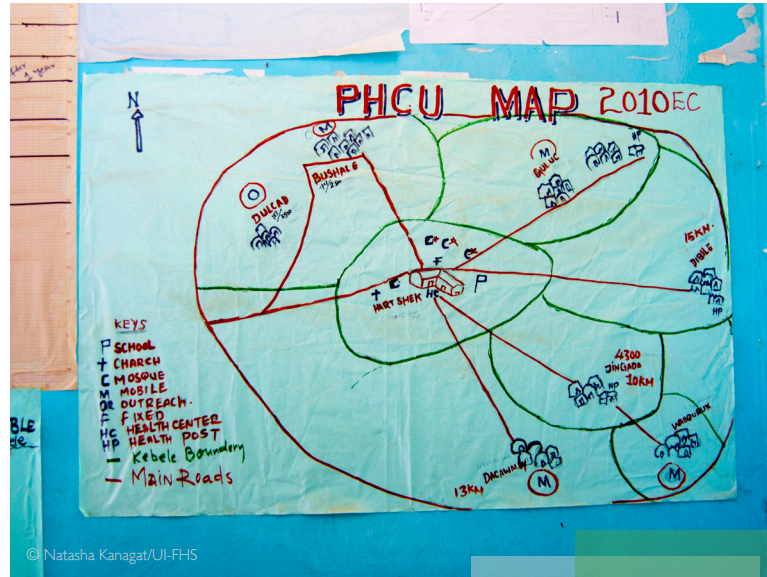 1 year
N
PHCU MAP 2010 EC
M
BUSHALE
O
DULCAD
M
GULUC
HP
15KM.
DIBILE
HP
C
C
C
F
C
P
HART SHEK
HC
4300
JINGIADA
10KM
HP
WARQURUX
M
DACAWALEY
13KM
M
KEYS
P SCHOOL
CHARCH
C MOSQUE
M MOBILE
OR OUTREACH.
F FIXED
HC HEALTH CENTER
HP HEALTH POST
Kebele Boundery
Main Roads
BLE
© Natasha Kanagat/UI-FHS